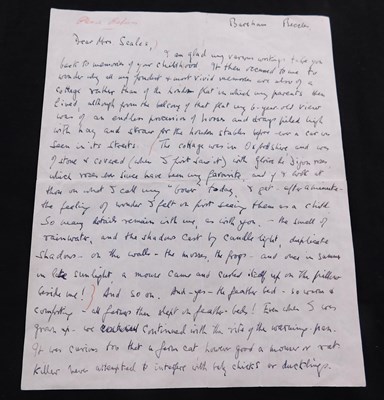 Barcham Beech
Dear Mrs. Scales,
I am glad my various writings take you
back to memories of your childhood. It then seemed to me to
wonder why all my fondest & most vivid memories are always of a
cottage rather than of the London flat in which my parents then
lived, although from the balcony of that flat my 6-year-old view
was of an endless procession of horse and drays piled high
with hay and straw for the London stables before ever a car was
seen in its streets. The cottage was in Oxfordshire and was
of stone & covered (when I first saw it) with gloire de Dijon roses
which roses ever since have been my favourite, and if I look at
them on what I call my "
the feeling of wonder I felt on first seeing them as a child.
So many details remain with me, as with you, - the smell of
rainwater, and the shadows cast by candle-light, duplicate
shadows - on the walls - the mosses, the frogs - and once in summer
in sunlight a mouse came and curled itself up on the pillow
beside me! And so on. And - yes - the feather bed - so warm &
comforting - all farms then slept on feather-beds! Even when I was
grown up - we continued with the rite of the warming-pan.
It was curious too that a farm cat however good a mouser or rat
killer never attempted to interfere with baby chicks or ducklings.